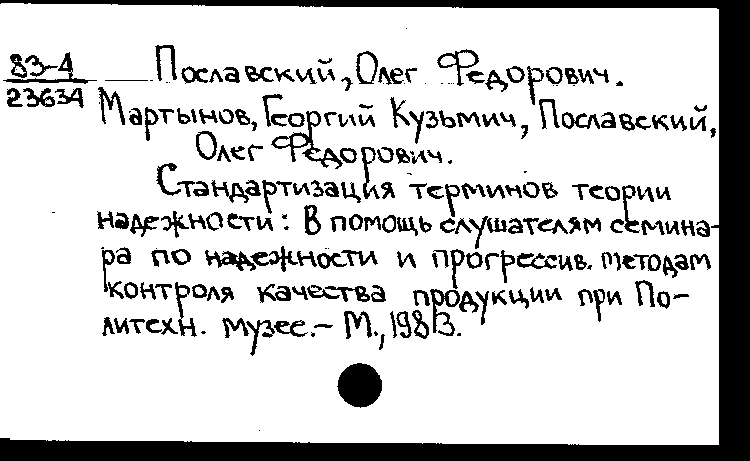 83-4
23634
Пославский, Олег Федорович.
Мартынов, Георгий Кузьмич, Пославский,
Олег Федорович.
Стандартизация терминов теории
надежности: В помощь слушателям семина-
ра по надежности и прогрессив. методам
контроля качества продукции при По-
литехн. музее.- М., 1983.